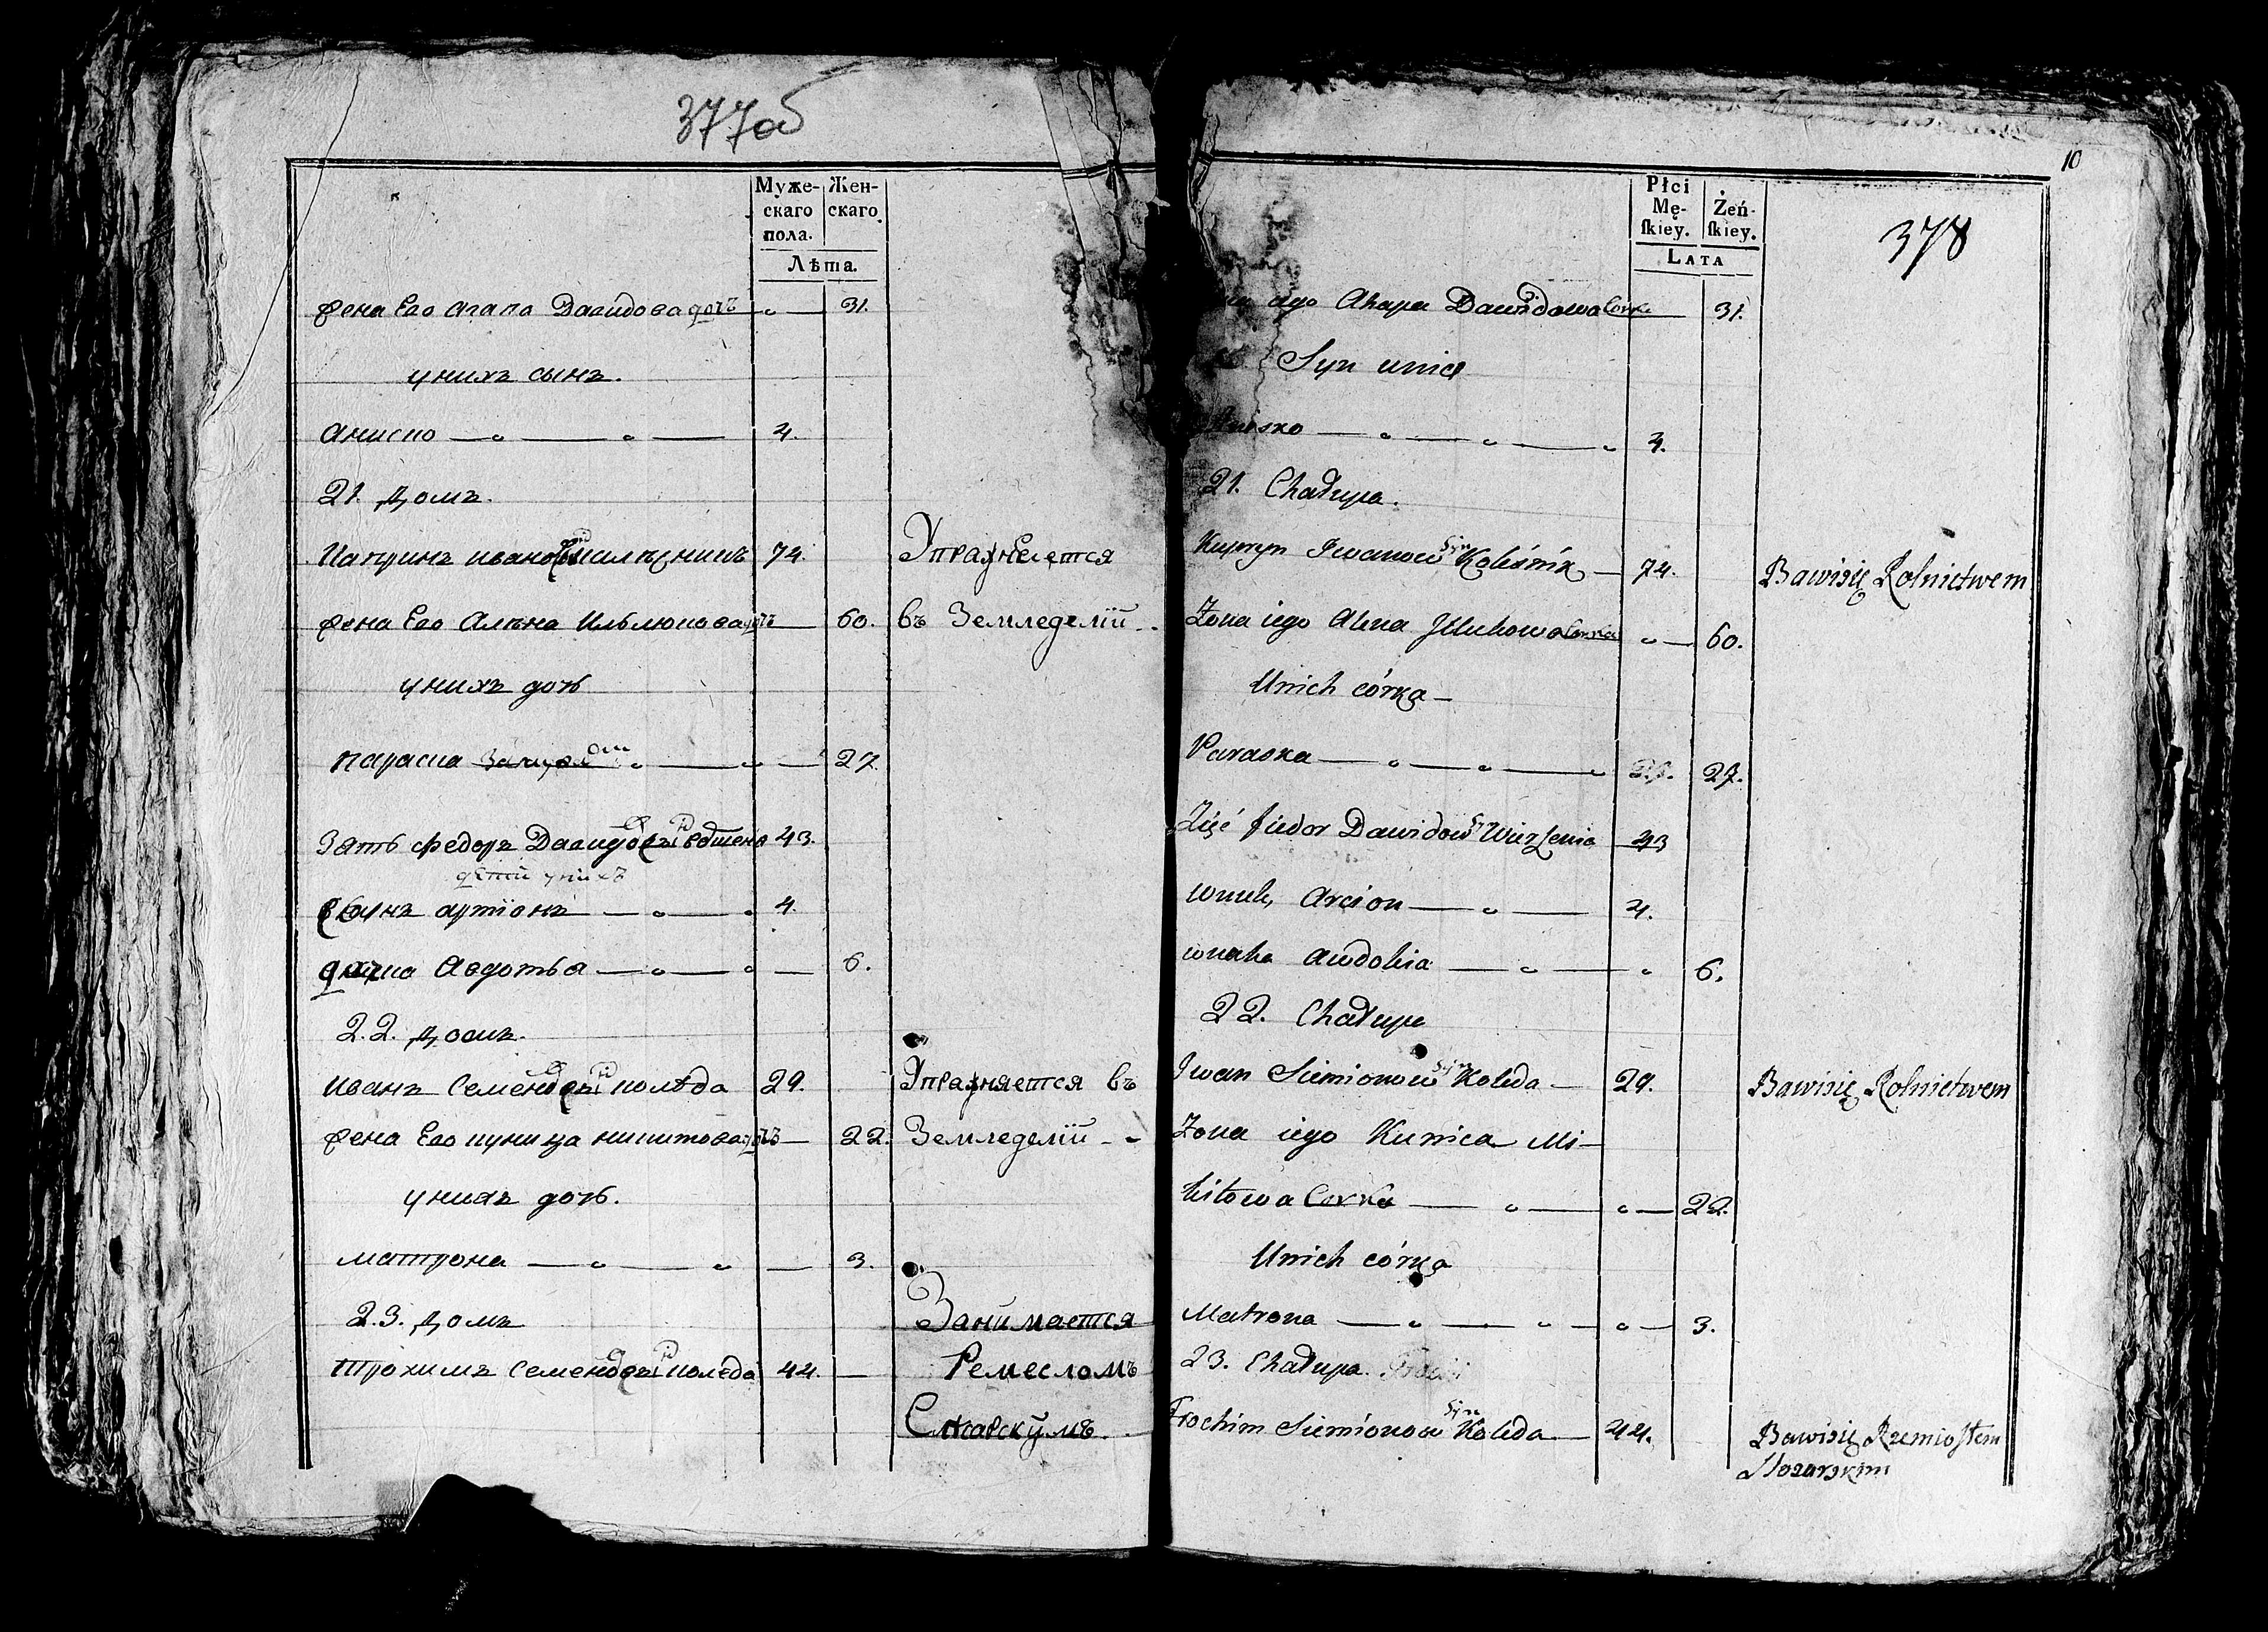 377об
Муже-
скаго
пола.
Жен-
скаго
Лѣта.
жена Его Агапа Давидова дочь 31.
у нихъ сынъ.
Аниско 4.
21. Домъ.
Купринъ Ивановъ сынъ Колѣсникъ 74. Упражнѣется
жена Его Алѣна Ильлюкова дочь 60. въ Земледелiи
у нихъ дочь
Параска 27.
Зять Федоръ Давидовъ сынъ 43.
дѣти у нихъ
сынъ Артiонъ 4.
дочь Авдотья 6.
22. Домъ.
Иванъ Семеновъ сынъ Колѣда 29. Упражняется въ
жена Его Куница Никитова дочь 22. Земледелiи
у нихъ дочь.
Матрона 3.
23. Домъ Занимается
Трохимъ Семеновъ сынъ Колѣда 44. Ремесломъ
10
378
Płci
Mę-
ſkiey.
Żeń-
ſkiey.
LATA
iego Ahapa Dawidowa Corka 31.
Syn unich
Anisko 4.
21. Chałupa.
Kupryn Iwanow Syn Koleśnik 74. Bawi się Rolnictwem
Żona iego Alena Illukowa Corka 60.
Unich córka
Paraska 27.
Zięć fiedor Dawidow Sy 43
wnuk, Arcion 4.
wnuka Awdokia 6.
22. Chałupa
Iwan Siemionow Syn Koleda 29. Bawi się Rolnictwem
Żona iego Kunica Mi-
kitowa Corka 22.
Unich córka
Matrona 3.
23. Chałupa.
Trochim Siemionow Syn Koleda 44. Bawi się Rzemiosłem
Slosarskim